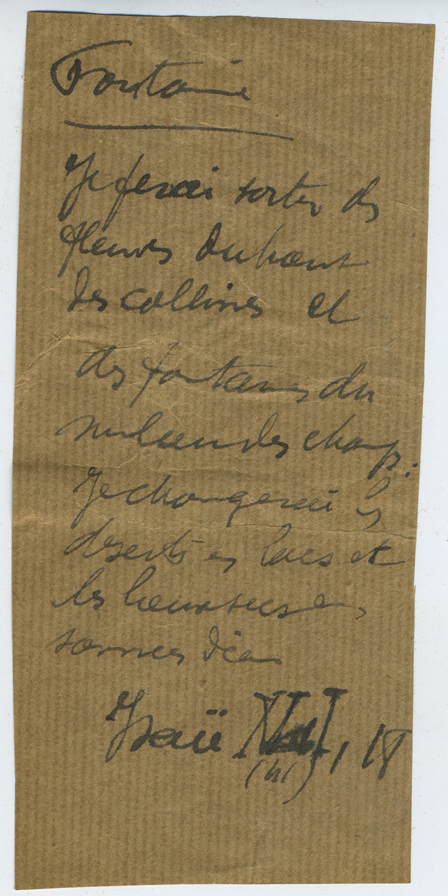 Fontaine
Je ferai sortir des
fleuves du haut
des collines et
des fontaines du
milieu des champs:
Je changerai les
deserts en lacs et
les lieux secs en
sources d'eau
Isaïe 18
(41)